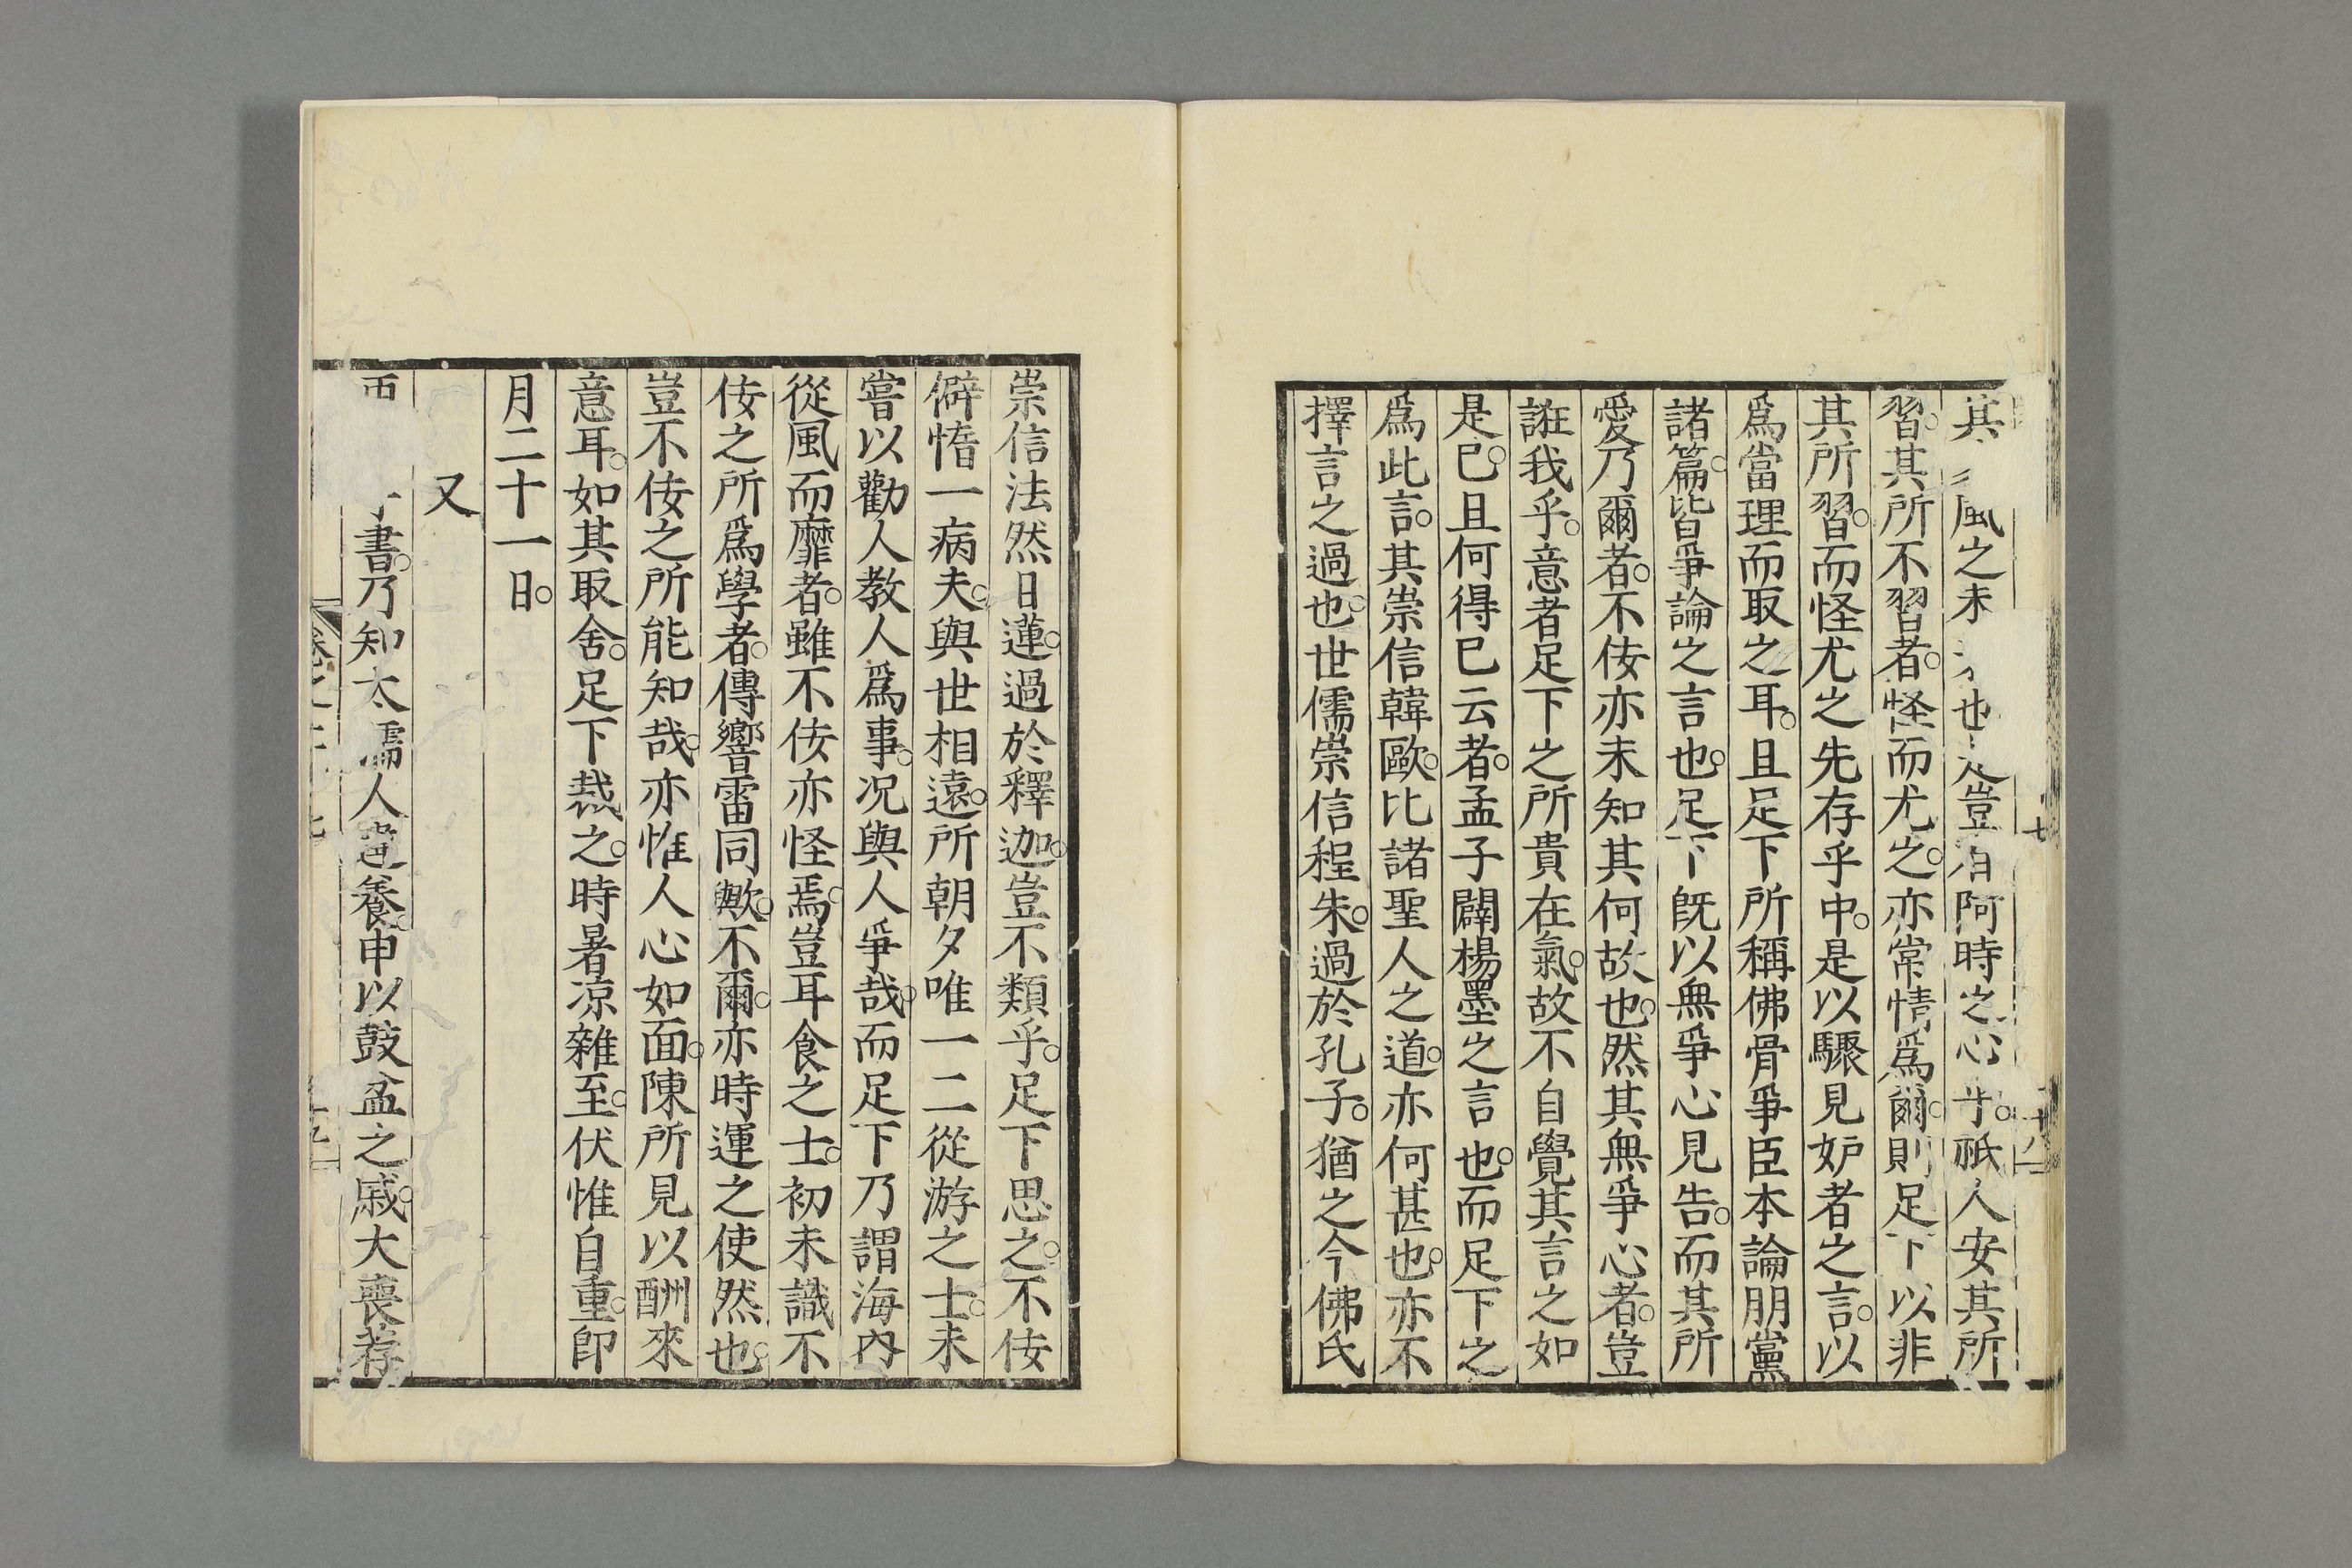 其風之未也豈阿時之心乎。祇人安其所
習。其所不習者。怪而尤之。亦常情爲爾。則足下以非
其所習。而怪尤之先存乎中。是以驟見妒者之言。以
爲當理而取之耳。且足下所稱佛骨爭臣本論朋黨
諸篇。皆爭論之言也。足下既以無爭心見告。而其所
愛乃爾者。不佞亦未知其何故也。然其無爭心者。豈
誑我乎。意者足下之所貴在氣。故不自覺其言之如
是已。且何得已云者。孟子闢楊墨之言也。而足下之
爲此言。其崇信韓歐。比諸聖人之道。亦何甚也。亦不
擇言之過也。世儒崇信程朱。過於孔子。猶之今佛氏
七
十八
崇信法然日蓮。過於釋迦。豈不類乎。足下思之。不佞
僻惰一病夫。與世相遠。所朝夕唯一二從游之士。未
嘗以勸人教人爲事。况與人爭哉。而足下乃謂海內
從風而靡者。雖不佞亦怪焉。豈耳食之士。初未識不
佞之所爲學者。傳響雷同歟。不爾。亦時運之使然也。
豈不佞之所能知哉。亦惟人心如面。陳所見以酬來
意耳。如其取舍。足下裁之。時暑凉雜至。伏惟自重。卽
月二十一日。
又
書。乃知太孺人違養。申以鼓盆之戚。大喪荐
卷之二十七
十九